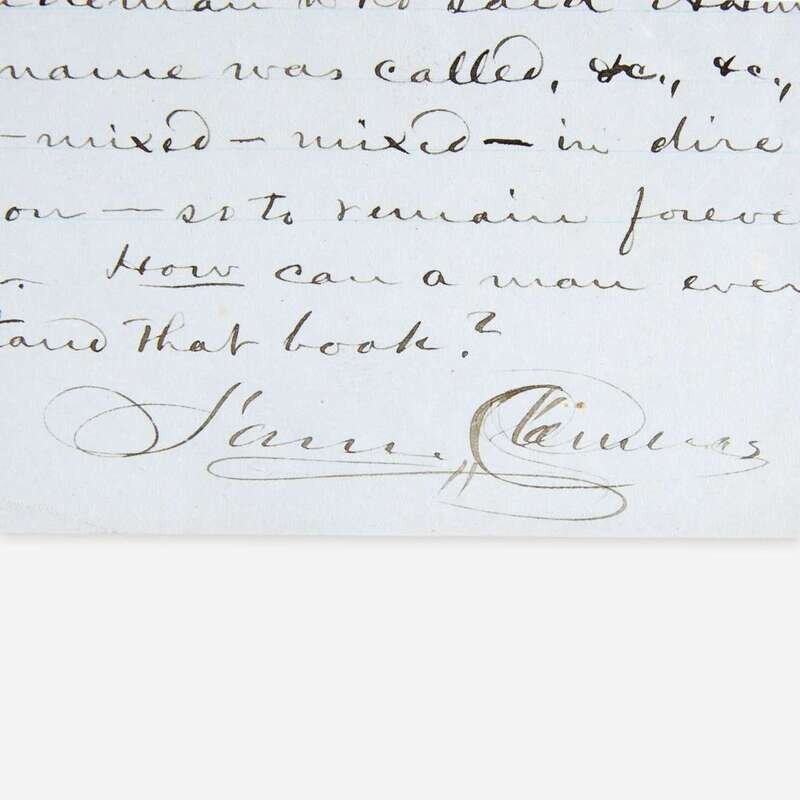 who said
name was called, &c., &c.,
-mixed - mixed - in dire
on - so to remain foreve
. How can a man ever
tand that book?
Sam. Clemens